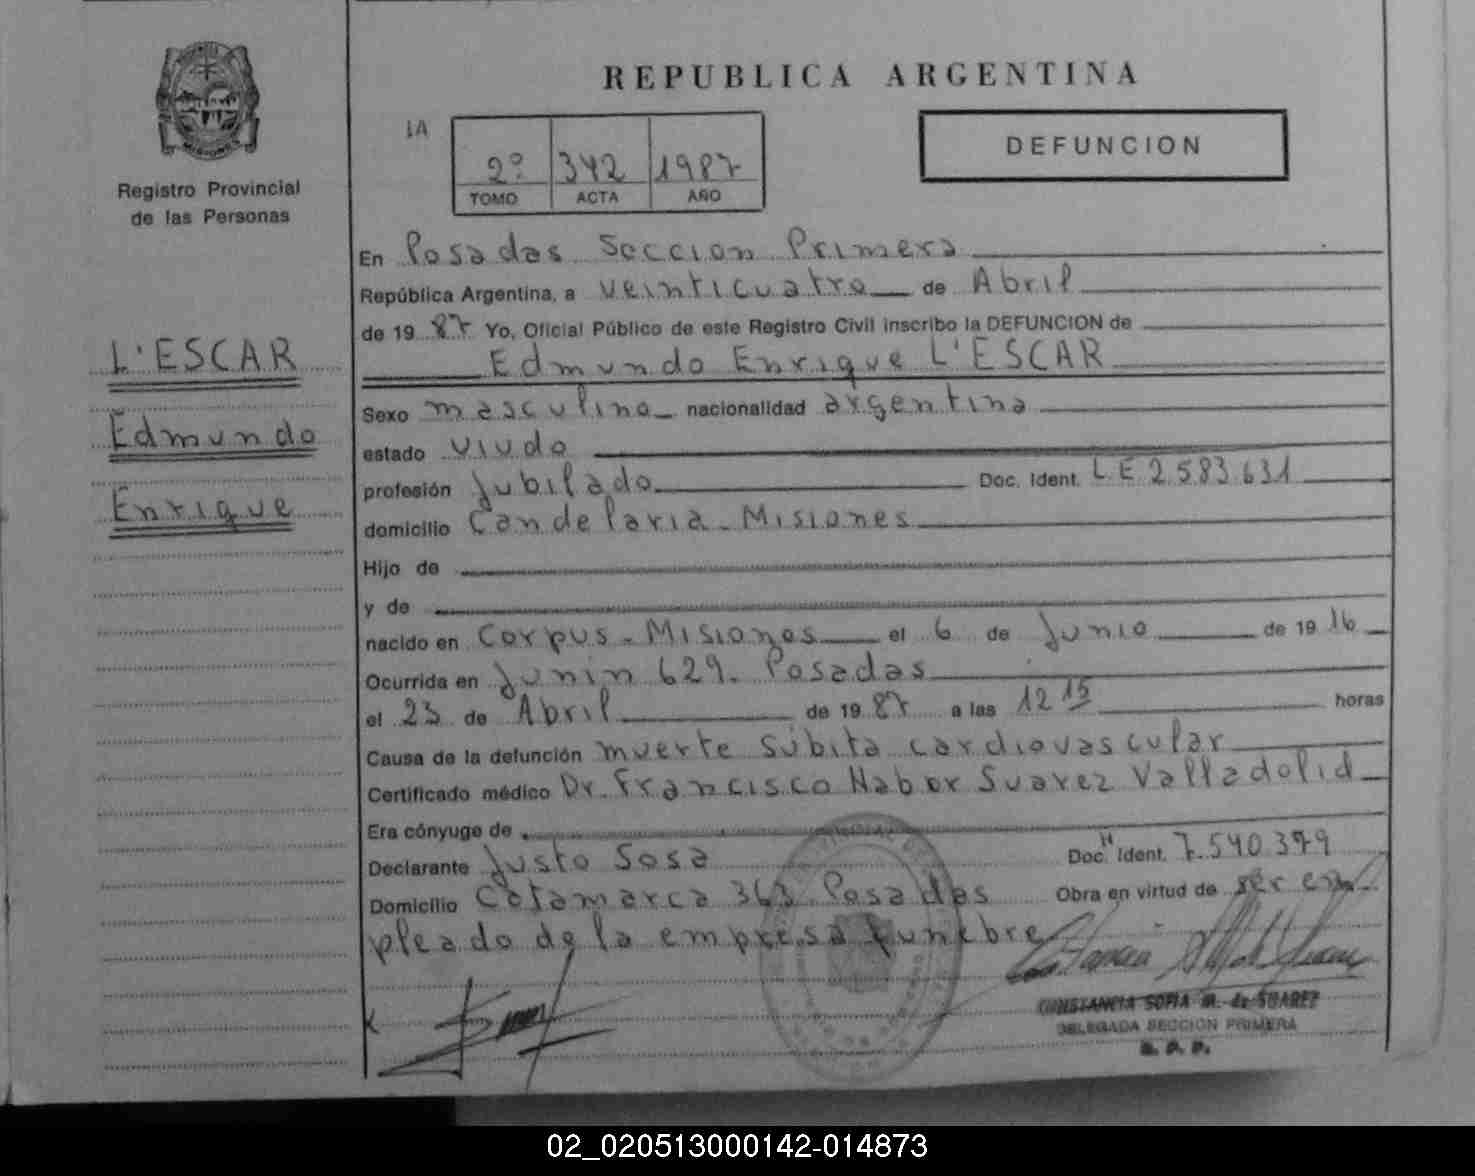 REPUBLICA ARGENTINA
1A
2º 342 1987
TOMO ACTA AÑO
DEFUNCION
MISIONES
Registro Provincial
de las Personas
L'ESCAR
Edmundo
Enrique
En Posadas Seccion Primera
República Argentina, a veinticuatro de Abril
de 19 87 Yo, Oficial Público de este Registro Civil inscribo la DEFUNCION de
Edmundo Enrique L'ESCAR
Sexo masculino nacionalidad argentina
estado viudo
profesión jubilado Doc. Ident. LE 2.583.631
domicilio Candelaria - Misiones
Hijo de
y de
nacido en Corpus - Misiones el 6 de Junio de 19 16
Ocurrida en Junin 629. Posadas
el 23 de Abril de 19 87 a las 12 15 horas
Causa de la defunción muerte súbita cardiovascular
Certificado médico Dr. Francisco Nabor Suarez Valladolid
Era cónyuge de
Declarante Justo Sosa Doc. Ident. 7.540.379
Domicilio Catamarca 363 Posadas Obra en virtud de ser em-
pleado de la empresa funebre
CONSTANCIA SOFIA M. de SUAREZ
DELEGADA SECCION PRIMERA
R. P. P.
02_020513000142-014873